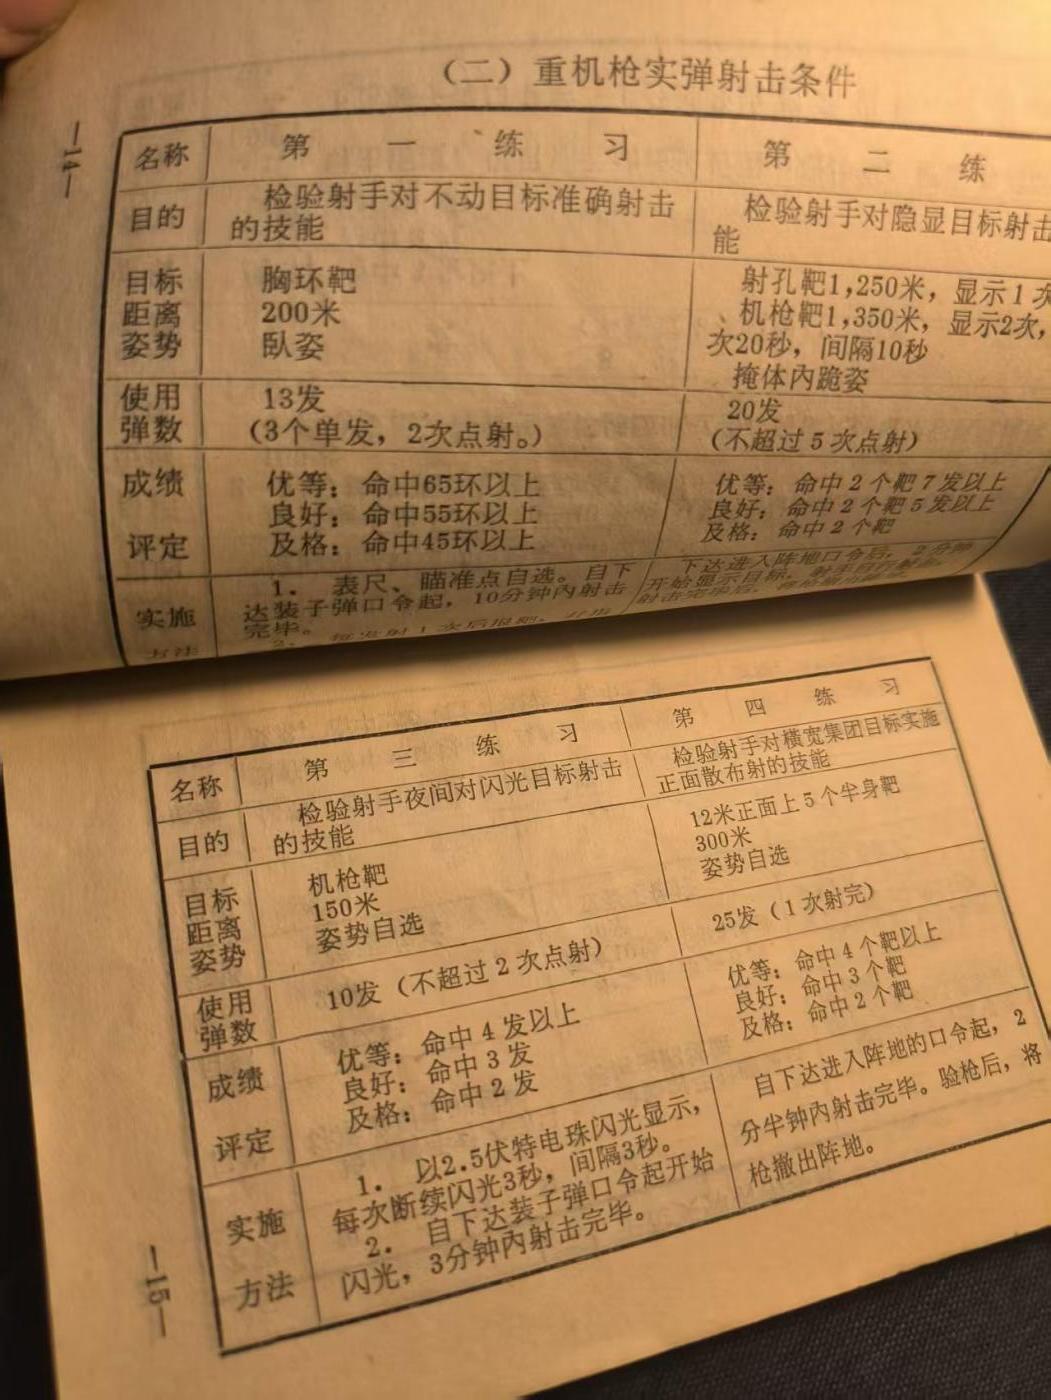 （二）重机枪实弹射击条件
—14—
名称
第一练习
第二练
目的
检验射手对不动目标准确射击
的技能
检验射手对隐显目标射击
能
目标
距离
姿势
胸环靶
200米
卧姿
射孔靶1,250米，显示1次
机枪靶1,350米，显示2次，
次20秒，间隔10秒
掩体内跪姿
使用
弹数
13发
（3个单发，2次点射。）
20发
（不超过5次点射）
成绩
评定
优等：命中65环以上
良好：命中55环以上
及格：命中45环以上
优等：命中2个靶7发以上
良好：命中2个靶5发以上
及格：命中2个靶
实施
方法
1．表尺、瞄准点自选。自下
达装子弹口令起，10分钟内射击
完毕。
2．每发射1次后报靶，
下达进入阵地口令后，2分钟
开始显示目标，
射击完毕后，
名称
第三练习
第四练习
目的
检验射手夜间对闪光目标射击
的技能
检验射手对横宽集团目标实施
正面散布射的技能
目标
距离
姿势
机枪靶
150米
姿势自选
12米正面上5个半身靶
300米
姿势自选
使用
弹数
10发（不超过2次点射）
25发（1次射完）
成绩
评定
优等：命中4发以上
良好：命中3发
及格：命中2发
优等：命中4个靶以上
良好：命中3个靶
及格：命中2个靶
实施
方法
1．以2.5伏特电珠闪光显示，
每次断续闪光3秒，间隔3秒。
2．自下达装子弹口令起开始
闪光，3分钟内射击完毕。
自下达进入阵地的口令起，2
分半钟内射击完毕。验枪后，将
枪撤出阵地。
—15—